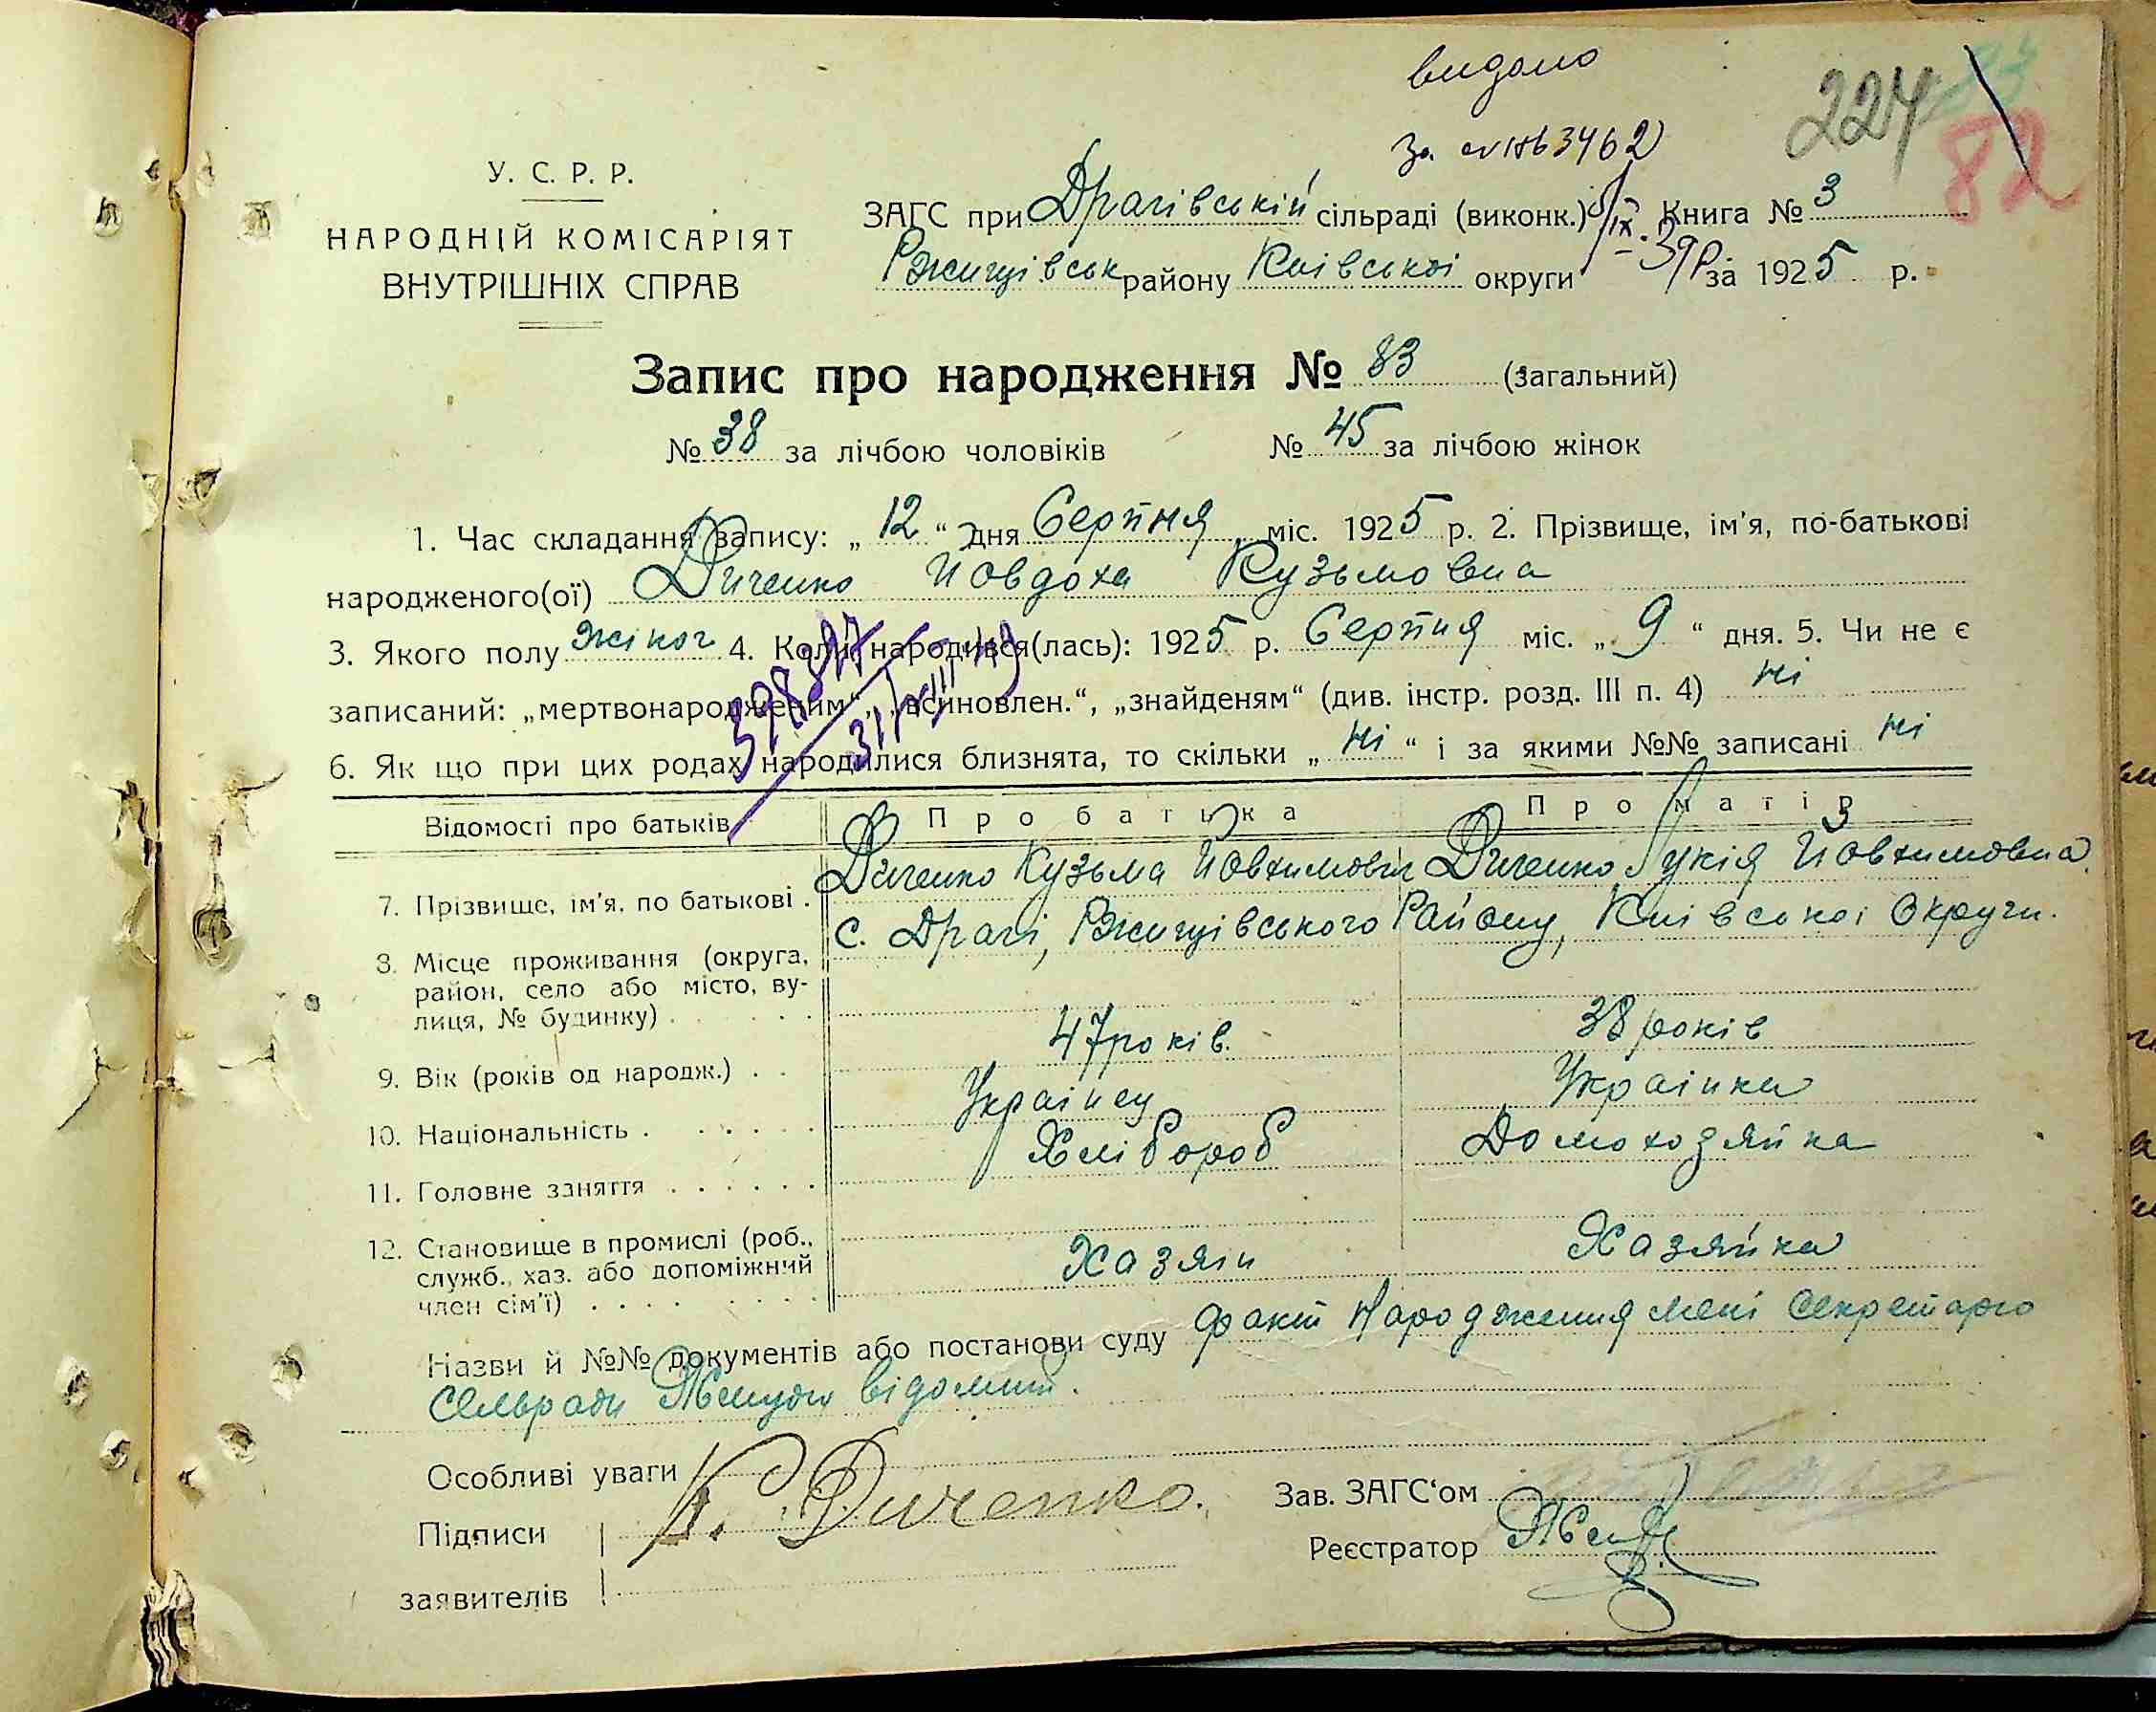 видано
За №Нб 3462
224
83
82
У. С. Р. Р.
НАРОДНІЙ КОМІСАРІЯТ
ВНУТРІШНІХ СПРАВ
ЗАГС при Драгівській сільраді (виконк.) Книга № 3
Ржищівськ району Київської округи за 1925 р.
Запис про народження № 83 (загальний)
№ 38 за лічбою чоловіків № 45 за лічбою жінок
1. Час складання запису: „ 12 “ дня Серпня міс. 1925 р. 2. Прізвище, ім'я, по-батькові
народженого(ої) Диченко Йовдоха Кузьмовна
3. Якого полу жіноч 4. Коли народився(лась): 1925 р. Серпня міс. „ 9 “ дня. 5. Чи не є
записаний: „мертвонародженим“, „всиновлен.“, „знайденям“ (див. інстр. розд. III п. 4) ні
6. Як що при цих родах народилися близнята, то скільки „ ні “ і за якими №№ записані ні
Відомості про батьків Про батька Про матір
7. Прізвище, ім'я, по батькові . Диченко Кузьма Йовхимович Диченко Лукія Йовхимовна
с. Драгі, Ржищівського Району, Київської Округи.
8. Місце проживання (округа,
район, село або місто, ву-
лиця, № будинку) . . . . .
9. Вік (років од народж.) . . 47 років. 38 років
10. Національність . . . . . . Українец Українка
11. Головне заняття . . . . . . Хлібороб Домохозяйка
12. Становище в промислі (роб.,
служб., хаз. або допоміжний
член сім'ї) . . . . . . . . Хазяін Хазяйка
Назви й №№ документів або постанови суду факт Народження мені Секретарю
Сельради відомий.
Особливі уваги
Підписи К. Диченко.
заявителів
Зав. ЗАГС‘ом
Реєстратор